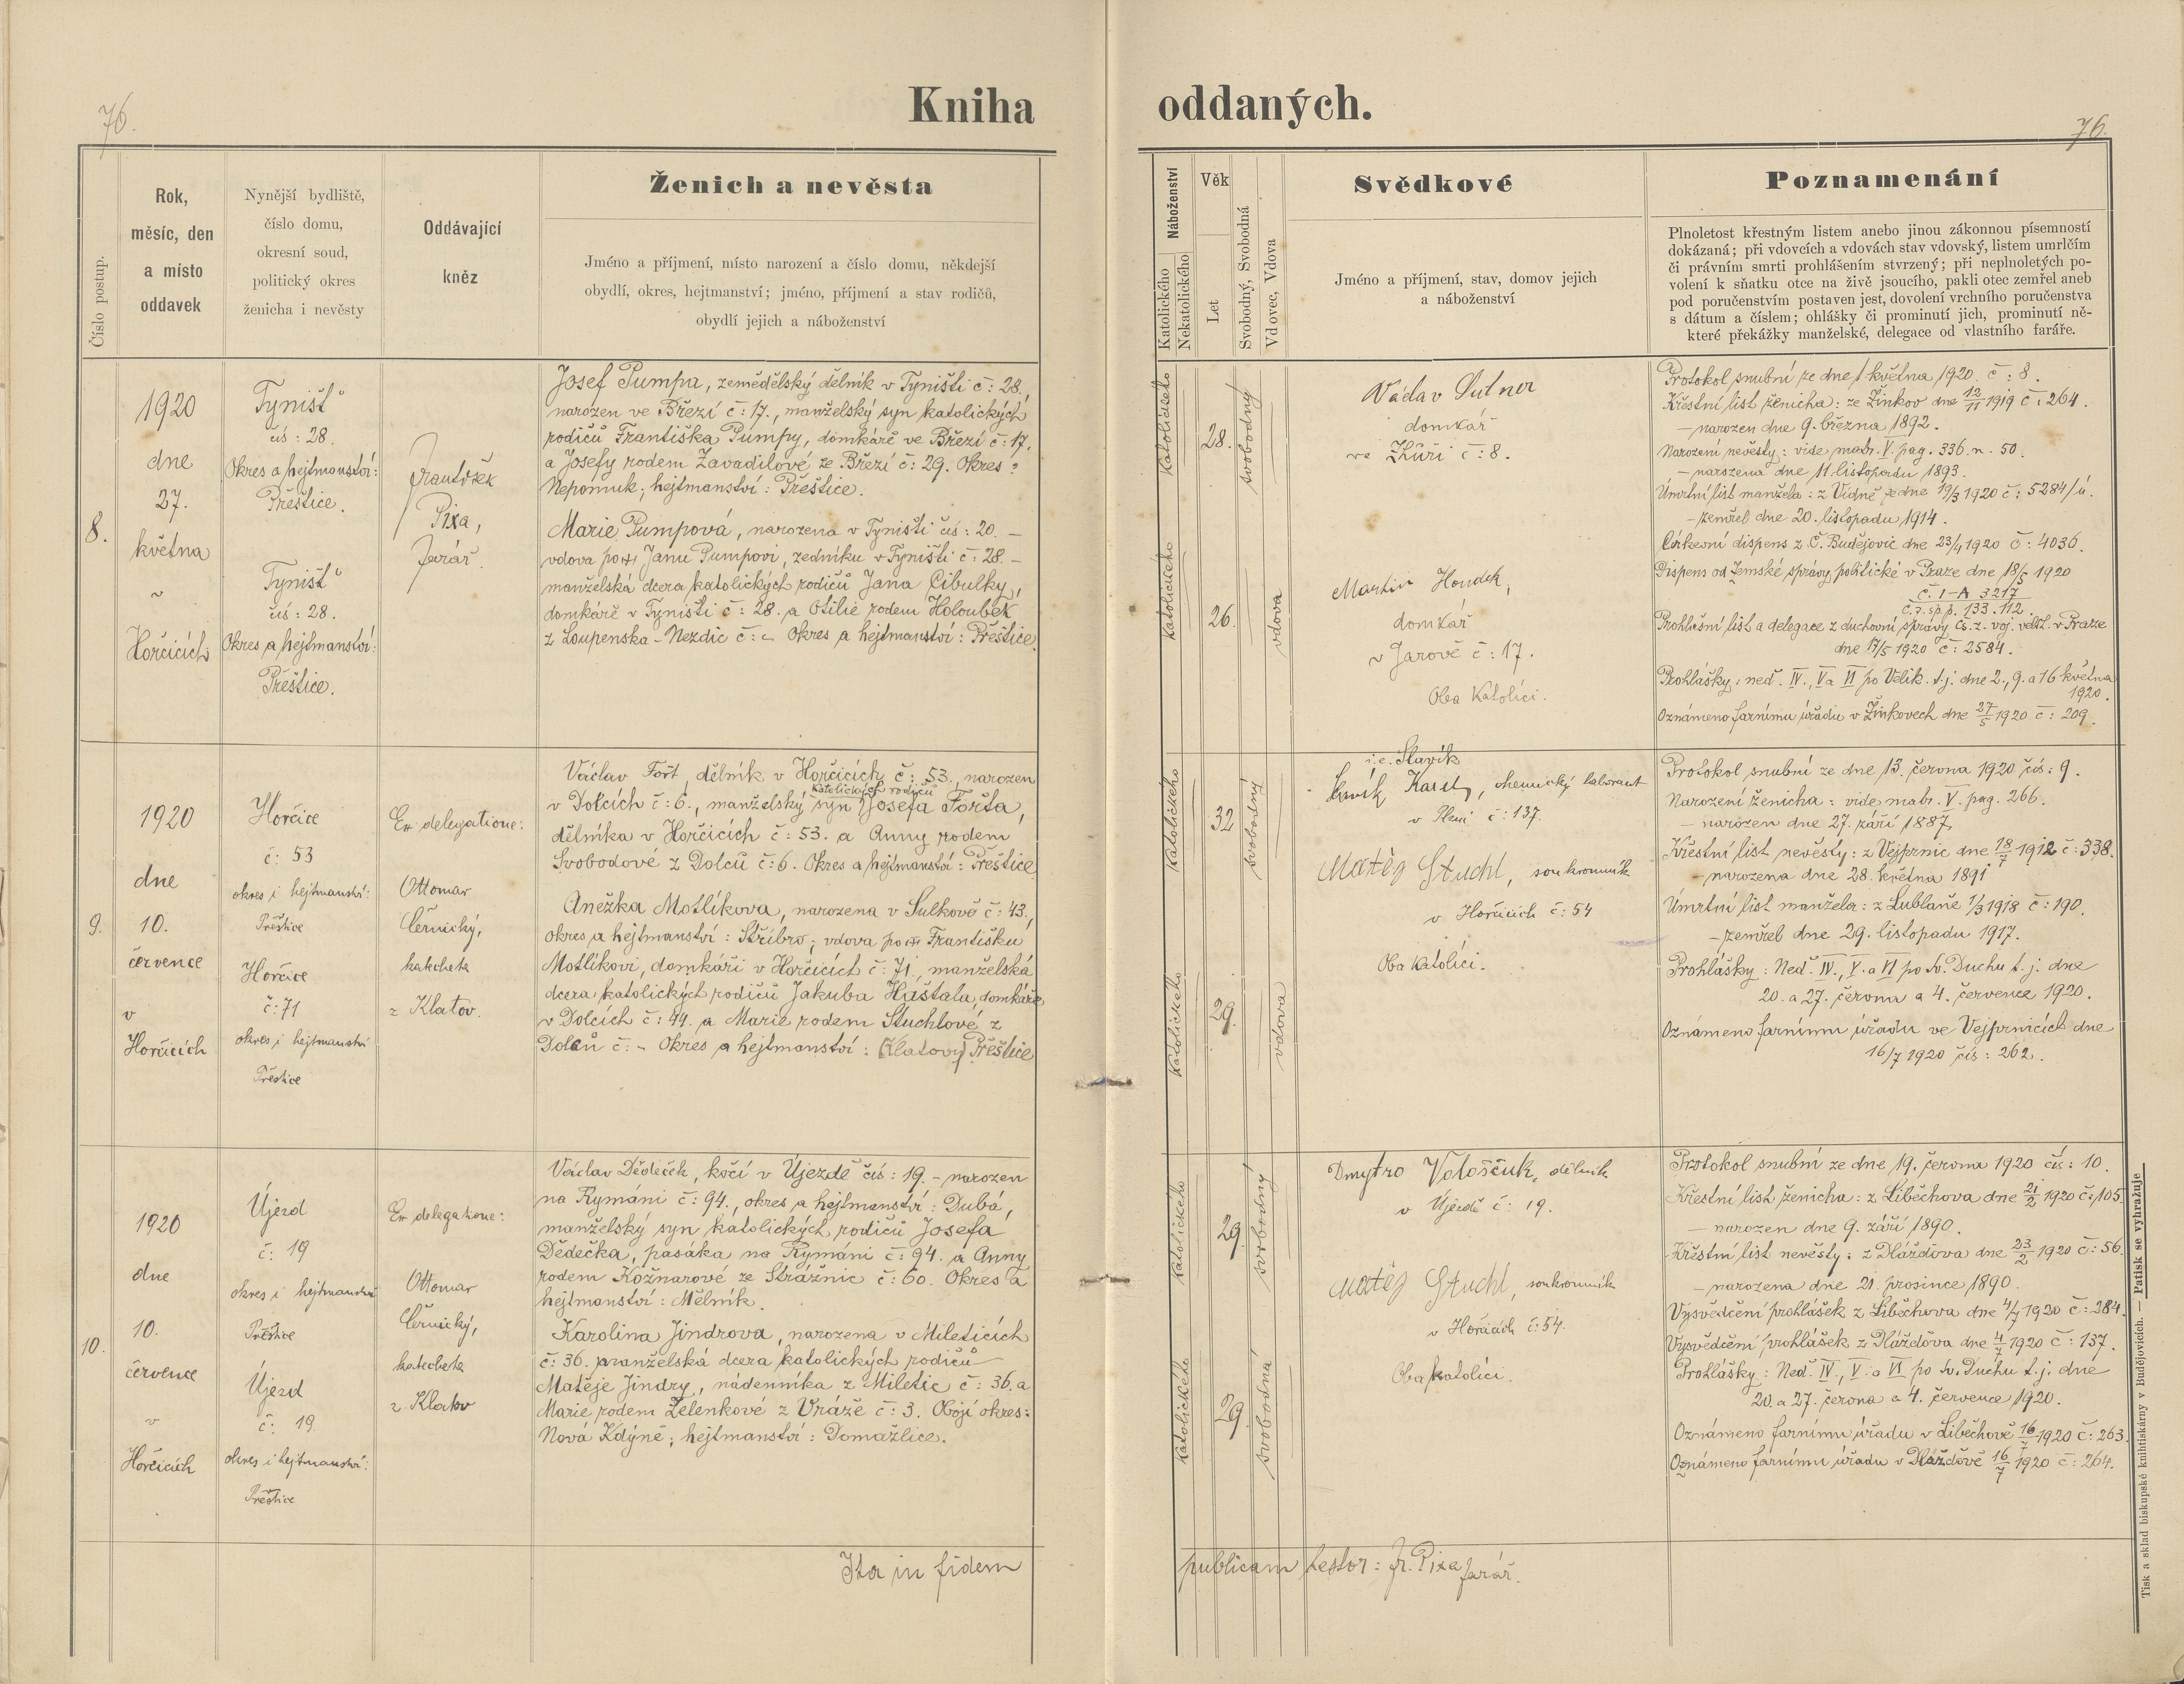 76.
Kniha oddaných.
76.
Číslo postup.
Rok,
měsíc, den
a místo
oddavek
Nynější bydliště,
číslo domu,
okresní soud,
politický okres
ženicha i nevěsty
Oddávající
kněz
Ženich a nevěsta
Jméno a příjmení, místo narození a číslo domu, někdejší
obydlí, okres, hejtmanství; jméno, příjmení a stav rodičů,
obydlí jejich a náboženství
Náboženství
Katolického
Nekatolického
Věk
Let
Svobodný, Svobodná
Vdovec, Vdova
Svědkové
Jméno a příjmení, stav, domov jejich
a náboženství
Poznamenání
Plnoletost křestným listem anebo jinou zákonnou písemností
dokázaná; při vdovcích a vdovách stav vdovský, listem umrlčím
či právním smrti prohlášením stvrzený; při neplnoletých po-
volení k sňatku otce na živě jsoucího, pakli otec zemřel aneb
pod poručenstvím postaven jest, dovolení vrchního poručenstva
s dátum a číslem; ohlášky či prominutí jich, prominutí ně-
které překážky manželské, delegace od vlastního faráře.
8.
1920
dne
27.
května
v
Horčicích
Týnišť
čís: 28.
Okres a hejtmanství:
Přeštice.
Týnišť
čís: 28.
Okres a hejtmanství:
Přeštice.
František
Pixa,
farář.
Josef Pumpa, zemědělský dělník v Týništi č: 28.
narozen ve Březí č: 17., manželský syn katolických
rodičů Františka Pumpy, domkáře ve Březí č: 17.
a Josefy rodem Zavadilové ze Březí č: 29. Okres:
Nepomuk; hejtmanství: Přeštice.
Marie Pumpová, narozena v Týništi čís: 20. –
vdova po Janu Pumpovi, zedníku v Týništi č: 28. –
manželská dcera katolických rodičů Jana Cibulky,
domkáře v Týništi č: 28. a Otilie rodem Holoubek
z Loupenska - Nezdic č: – Okres a hejtmanství: Přeštice.
Katolického
28.
svobodný
Katolického
26.
vdova
Václav Sutner
domkář
ve Zhůři č: 8.
Martin Houdek,
domkář
v Jarově č: 17.
Oba Katolíci.
Protokol snubní ze dne 1 května 1920. č: 8.
Křestní list ženicha: ze Žinkov dne 12/11 1919 č: 264.
– narozen dne 9. března 1892.
Narození nevěsty: vide matr. V. pag. 336. n. 50.
– narozena dne 11. listopadu 1893.
Úmrtní list manžela: z Vídně ze dne 19/3 1920 č: 5284/ú.
– zemřel dne 20. listopadu 1914.
Církevní dispens z Č. Budějovic dne 23/4 1920 č: 4036.
Dispens od Zemské správy politické v Praze dne 18/5 1920
č. I-A 3217
č. z. sp. p. 133.112.
Prohlášní list a delegace z duchovní správy čs. z. voj. velit. v Praze
dne 17/5 1920 č: 2584.
Prohlášky: ned. IV., V a VI po Velik. t. j. dne 2., 9. a 16 května
1920.
Oznámeno farnímu úřadu v Žinkovech dne 27/5 1920 č: 209.
9.
1920
dne
10.
července
v
Horčicích
Horčice
č: 53
okres i hejtmanství:
Přeštice
Horčice
č: 71
okres i hejtmanství
Přeštice
Ex delegatione:
Ottomar
Černický,
katecheta
z Klatov.
Václav Fořt, dělník v Horčicích č: 53., narozen
katolických rodičů
v Dolcích č: 6., manželský syn Josefa Fořta,
dělníka v Horčicích č: 53. a Anny rodem
Svobodové z Dolců č: 6. Okres a hejtmanství: Přeštice
Anežka Motlíkova, narozena v Sulkově č: 43.,
okres a hejtmanství: Stříbro; vdova po Františku
Motlíkovi, domkáři v Horčicích č: 71., manželská
dcera katolických rodičů Jakuba Haštala, domkáře
v Dolcích č: 44. a Marie rodem Stuchlové z
Dolců č: – Okres a hejtmanství: (Klatovy) Přeštice
Katolického
32
svobodný
Katolického
29.
vdova
i. e. Slavík
Karel, chemický laborant
v Plzni č: 137.
Matěj Stuchl, soukromník
v Horčicích č: 54
Oba Katolíci.
Protokol snubní ze dne 13. června 1920 čís: 9.
Narození ženicha: vide matr. V. pag. 266.
– narozen dne 27. září 1887.
Křestní list nevěsty: z Vejprnic dne 18/7 1912 č: 338.
– narozena dne 28. května 1891
Úmrtní list manžela: z Lublaně 1/3 1918 č: 190.
– zemřel dne 29. listopadu 1917.
Prohlášky: Ned. IV., V. a VI po Sv. Duchu t. j. dne
20. a 27. června a 4. července 1920.
Oznámeno farnímu úřadu ve Vejprnicích dne
16/7 1920 čís: 262.
10.
1920
dne
10.
července
v
Horčicích
Újezd
č: 19
okres i hejtmanství
Přeštice
Újezd
č: 19.
okres i hejtmanství:
Přeštice
Ex delegatione:
Ottomar
Černický,
katecheta
z Klatov
Václav Dědeček, kočí v Újezdě čís: 19. – narozen
na Rymáni č: 94., okres a hejtmanství: Dubá,
manželský syn katolických rodičů Josefa
Dědečka, pasáka na Rymáni č: 94. a Anny
rodem Kožnarové ze Strážnic č: 60. Okres a
hejtmanství: Mělník.
Karolina Jindrova, narozena v Mileticích
č: 36. manželská dcera katolických rodičů
Matěje Jindry, nádenníka z Miletic č: 36. a
Marie rodem Zelenkové z Úráže č: 3. Obojí okres:
Nová Kdýně; hejtmanství: Domažlice.
Katolického
29.
svobodný
Katolického
29.
svobodná
Dmytro Vološčuk, dělník
v Újezdě č: 19.
Matěj Stuchl, soukromník
v Horčicích č: 54.
Oba katolíci.
Protokol snubní ze dne 19. června 1920 čís: 10.
Křestní list ženicha: z Liběchova dne 21/2 1920 č: 105.
– narozen dne 9. září 1890.
Křestní list nevěsty: z Dlážďova dne 23/2 1920 č: 56.
– narozena dne 21. prosince 1890.
Vysvědčení prohlášek z Liběchova dne 4/7 1920 č: 284.
Vysvědčení prohlášek z Dlážďova dne 4/7 1920 č: 137.
Prohlášky: Ned. IV., V. a VI po Sv. Duchu t. j. dne
20. a 27. června a 4. července 1920.
Oznámeno farnímu úřadu v Liběchově 16/7 1920 č: 263.
Oznámeno farnímu úřadu v Dlážďově 16/7 1920 č: 264.
Ita in fidem publicam testor: Fr. Pixa farář.
Tisk a sklad biskupské knihtiskárny v Budějovicích. — Patisk se vyhražuje